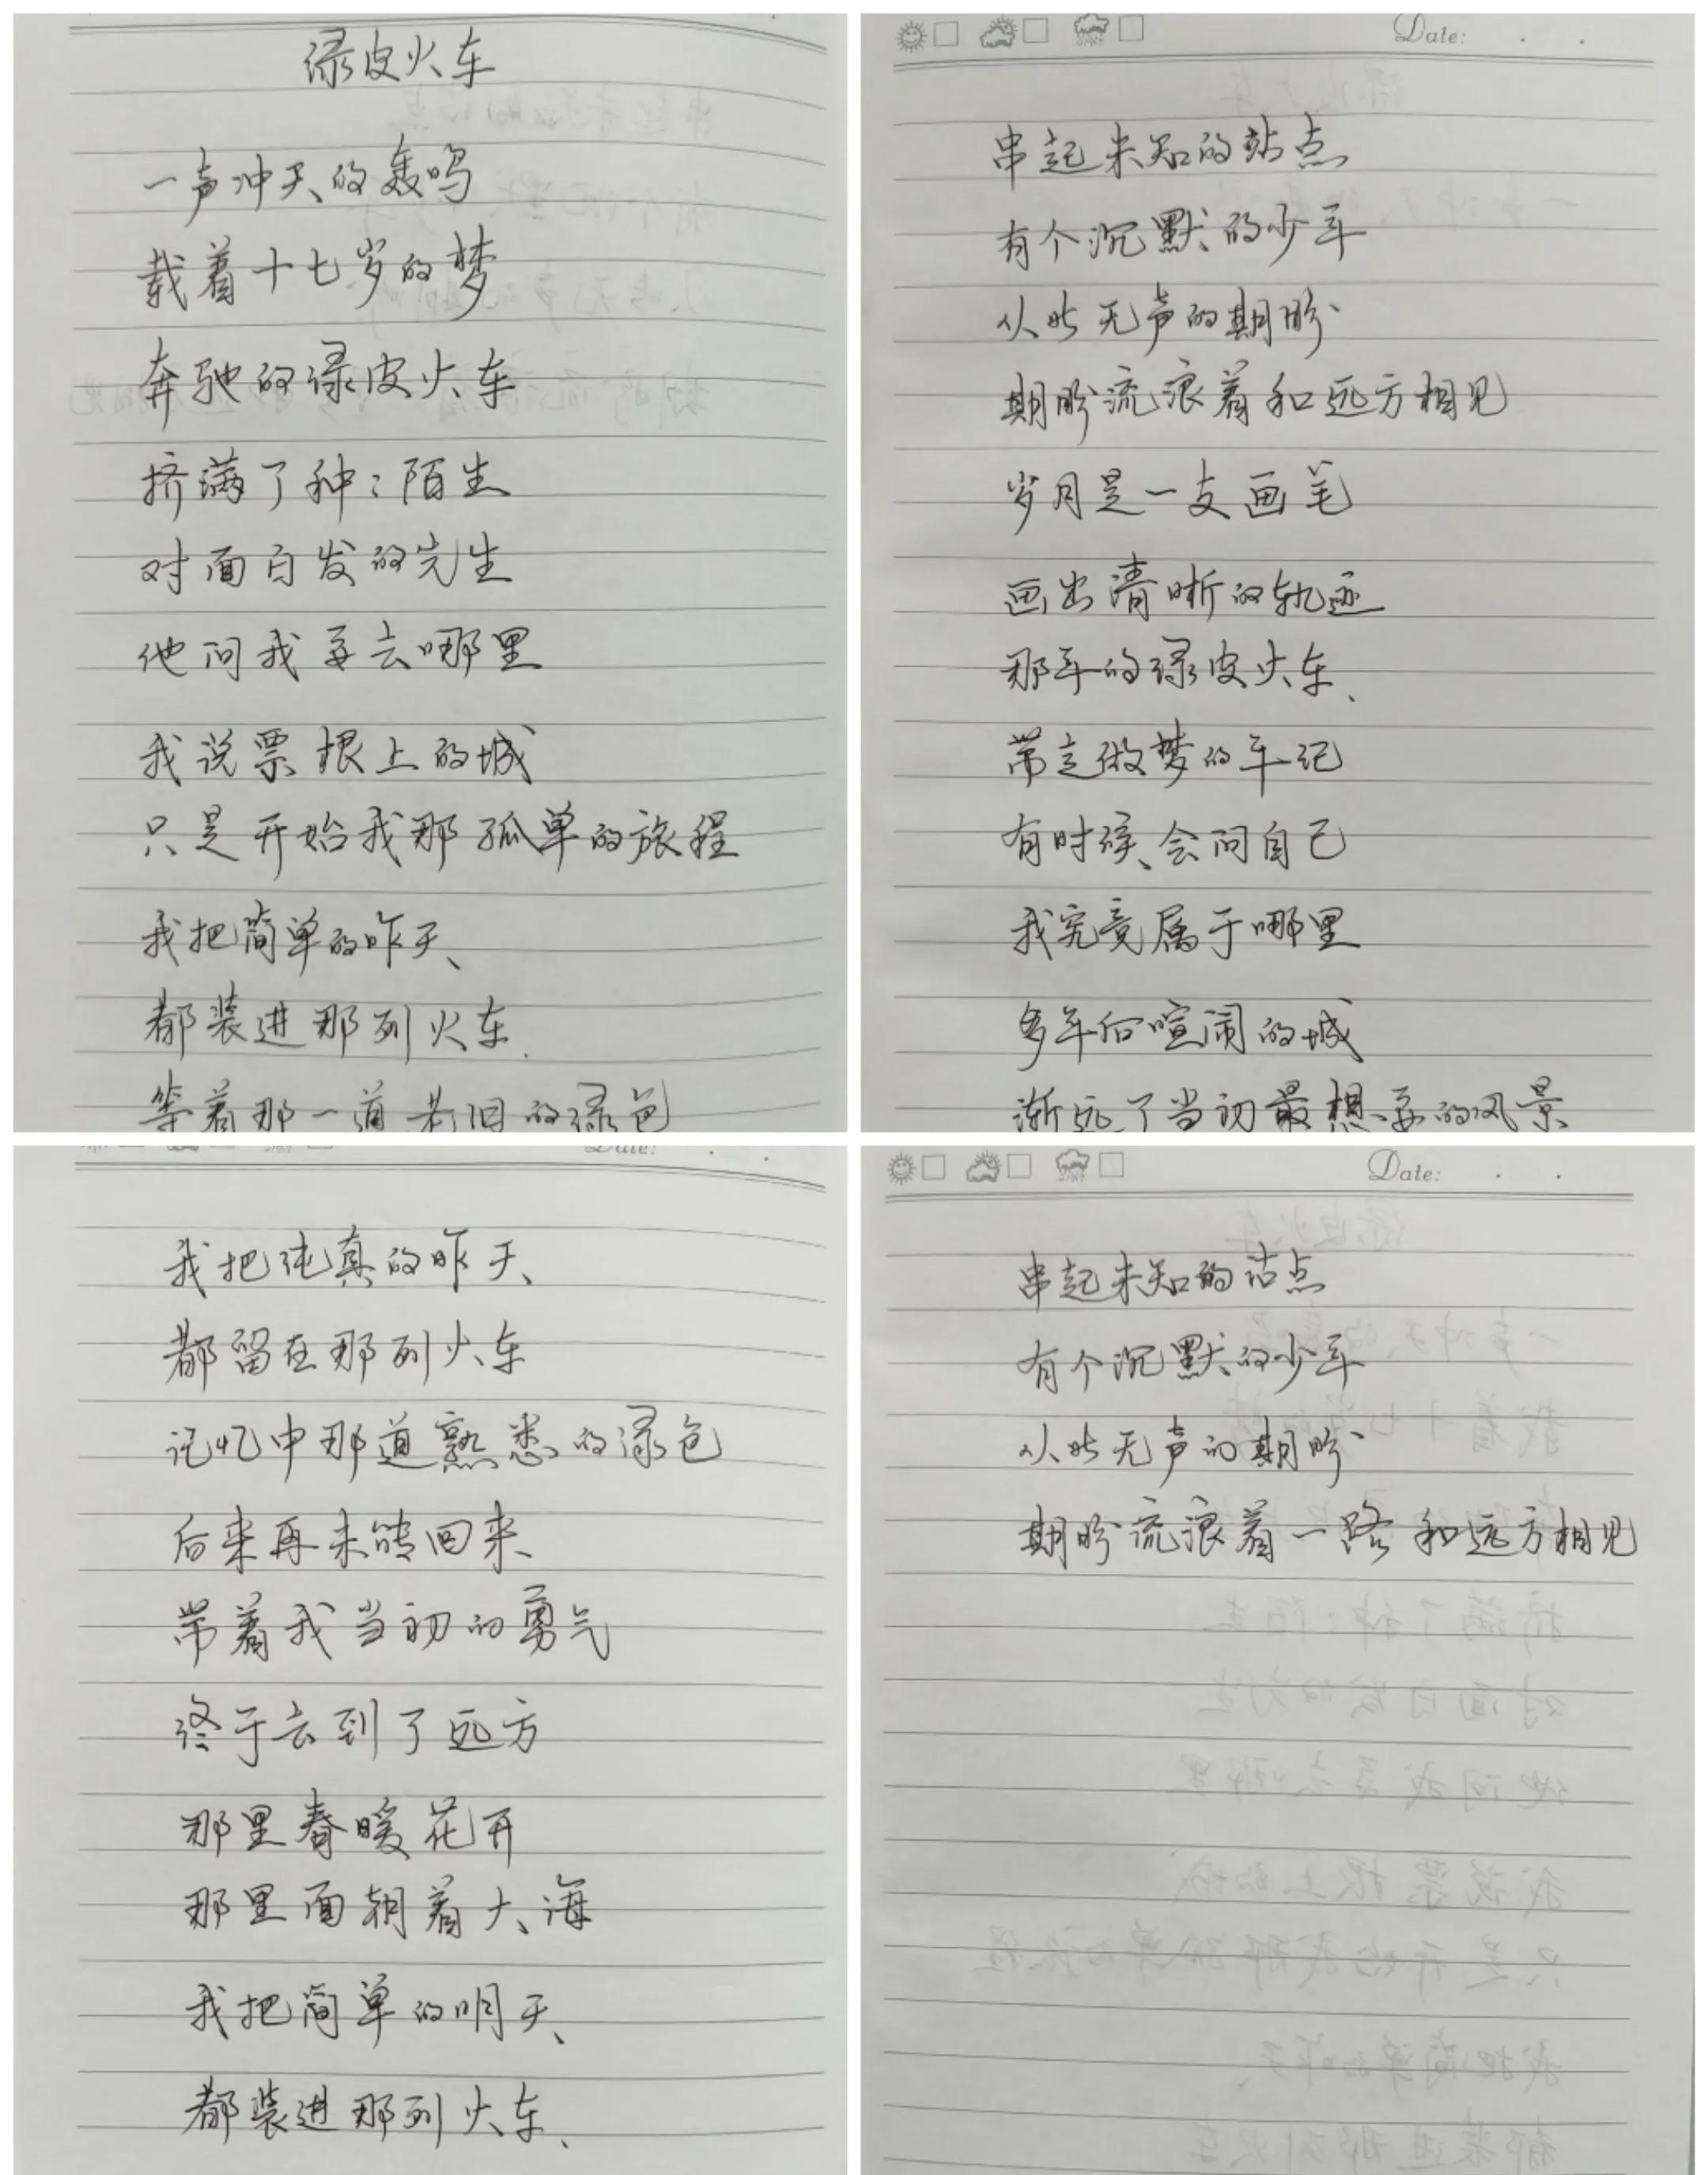 绿皮火车
一声冲天的轰鸣
载着十七岁的梦
奔驰的绿皮火车
挤满了种:陌生
对面白发的先生
他问我要去哪里
我说票根上的城
只是开始我那孤单的旅程
我把简单的昨天、
都装进那列火车.
等着那一道老旧的绿色
Date:
串起未知的站点
有个沉默的少年
从此无声的期盼
期盼流浪着和远方相见
岁月是一支画笔
画出清晰的轨迹
那年的绿皮火车、
带走做梦的年纪
有时候、会问自己
我究竟属于哪里
多年后喧闹的城
渐远了当初最想要的风景
Date:
我把纯真的昨天、
都留在那列火车
记忆中那道熟悉的绿色
后来再未转回来
带着我当初的勇气
终于去到了远方
那里春暖花开
那里面朝着大海
我把简单的明天、
都装进那列火车、
Date:
串起未知的站点
有个沉默的少年
从此无声的期盼
期盼流浪着一路和远方相见